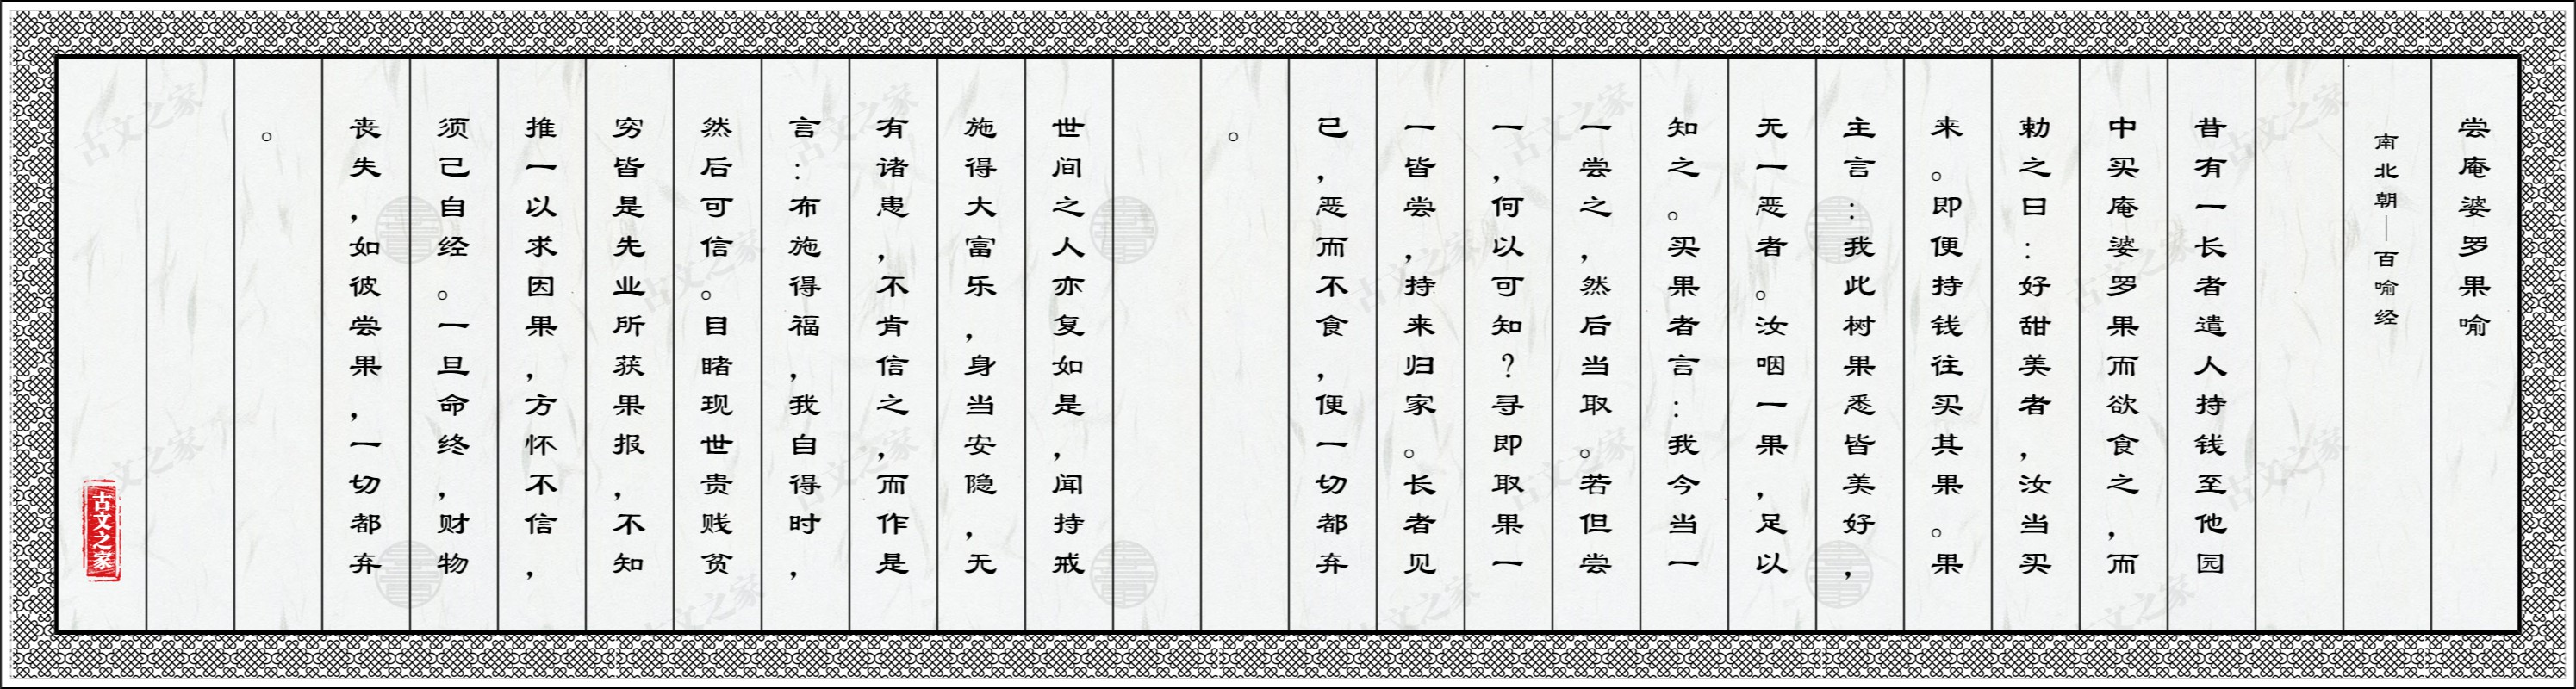 尝庵婆罗果喻
南北朝—百喻经
昔有一长者遣人持钱至他园
中买庵婆罗果而欲食之，而
勅之曰：好甜美者，汝当买
来。即便持钱往买其果。果
主言：我此树果悉皆美好，
无一恶者。汝咽一果，足以
知之。买果者言：我今当一
一尝之，然后当取。若但尝
一，何以可知？寻即取果一
一皆尝，持来归家。长者见
已，恶而不食，便一切都弃
。
世间之人亦复如是，闻持戒
施得大富乐，身当安隐，无
有诸患，不肯信之，而作是
言：布施得福，我自得时，
然后可信。目睹现世贵贱贫
穷皆是先业所获果报，不知
推一以求因果，方怀不信，
须己自经。一旦命终，财物
丧失，如彼尝果，一切都弃
。
古文之家